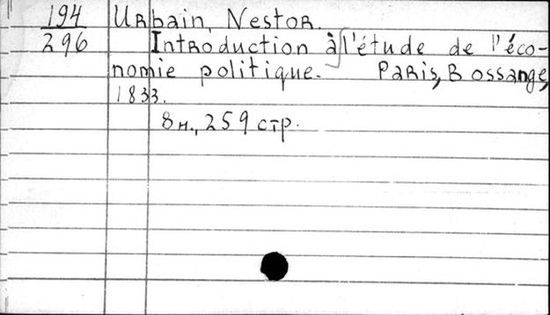 194 Urbain, Nestor.
296 Introduction à l'étude de l'éco-
nomie politique. Paris, Bossange,
1833.
8н., 259 стр.